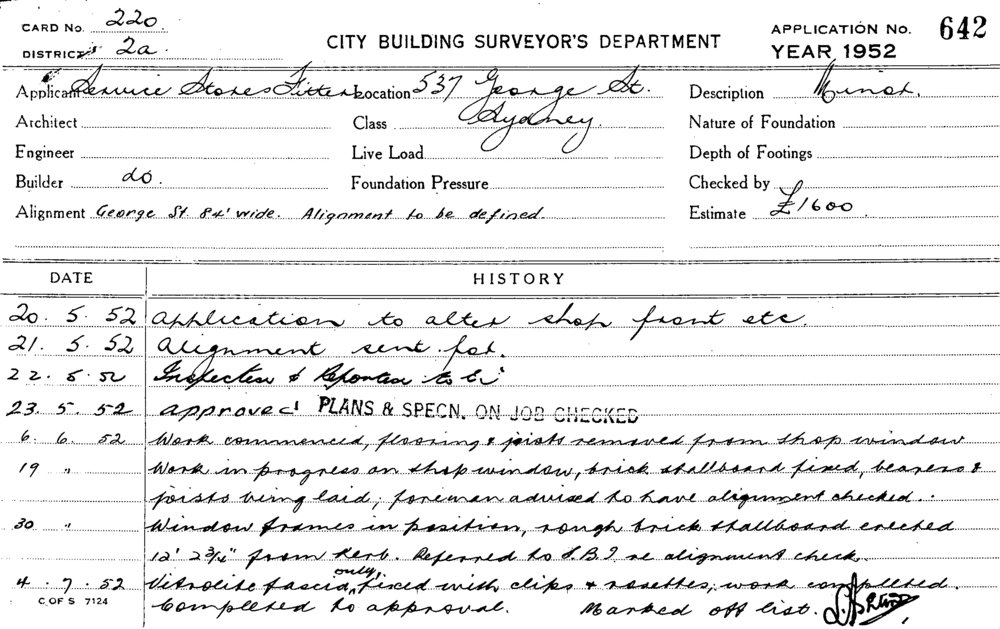 CARD No. 220.
DISTRICT 2a.
CITY BUILDING SURVEYOR'S DEPARTMENT
APPLICATION No. 642
YEAR 1952
Applicant Service Stores Fitters Location 537 George St. Sydney. Description Minor.
Architect Class Nature of Foundation
Engineer Live Load Depth of Footings
Builder do. Foundation Pressure Checked by
Alignment George St. 84' wide. Alignment to be defined Estimate £1600
DATE HISTORY
20. 5. 52 Application to alter shop front etc.
21. 5. 52 Alignment sent for.
22. 5. 52 Inspection & Reported to
23. 5. 52 approved PLANS & SPECN. ON JOB CHECKED
6. 6. 52 Work commenced, flooring & joists removed from shop window
19 " Work in progress on shop window, brick stallboard fixed, bearers &
joists being laid, foreman advised to have alignment checked.
30 " Window frames in position, rough brick stallboard erected
12' 2 3/4" from Kerb. Referred to S.B.I. re alignment check.
4. 7. 52 Vitrolite fascia only, fixed with clips & rosettes, work completed.
C OF S 7124
Completed to approval. Marked off list.